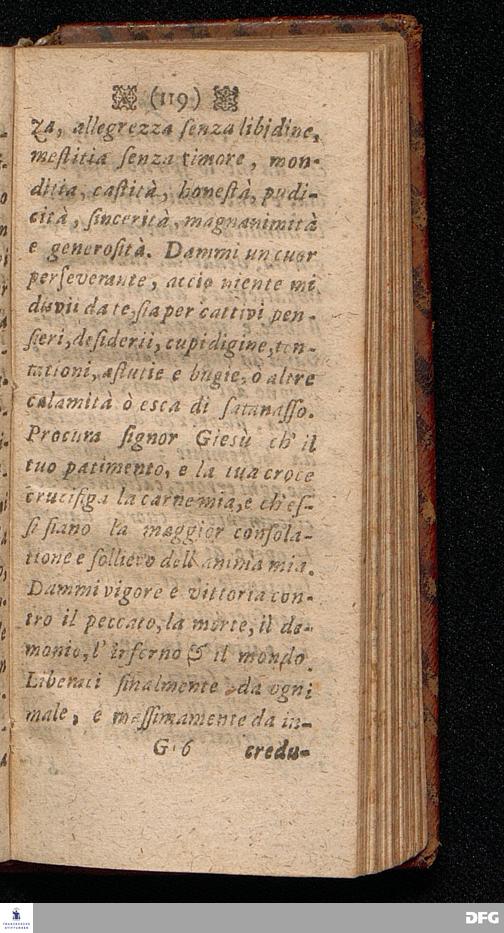 (119)
za, allegrezza ſenza libidine,
meſtitia ſenza timore, mon-
ditia, caſtità, honeſtà, pudi-
cità, ſincerità, magnanimità
e generoſità. Dammi un cuor
perſeverante, acciò niente mi
diſvii da te, ſia per cattivi pen-
ſieri, deſiderii, cupidigine, ten-
tationi, aſtutie e bugie, ò altre
calamità ò eſca di ſatanaſſo.
Procura ſignor Gieſù ch'il
tuo patimento, e la tua croce
crucifiga la carne mia, e ch'eſ-
ſi ſiano la maggior conſola-
tione e ſollievo dell' anima mia.
Dammi vigore e vittoria con-
tro il peccato, la morte, il de-
monio, l'inferno & il mondo.
Liberaci finalmente da ogni
male, e maſſimamente da in-
G 6 credu-
FRANCKESCHE
STIFTUNGEN
DFG